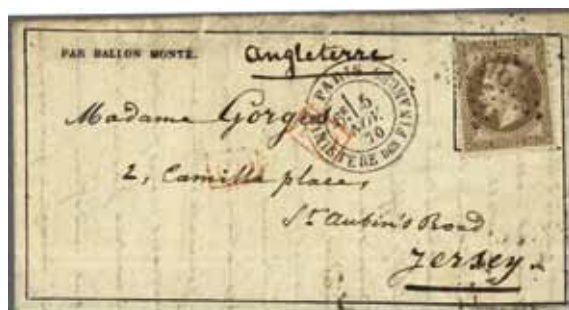 PAR BALLON MONTÉ.
Angleterre.
PARIS
5
NOV.
70
MINISTERE DES FINANCES
Madame Gorges
2, Camilla place,
St Aubin's Road.
Jersey